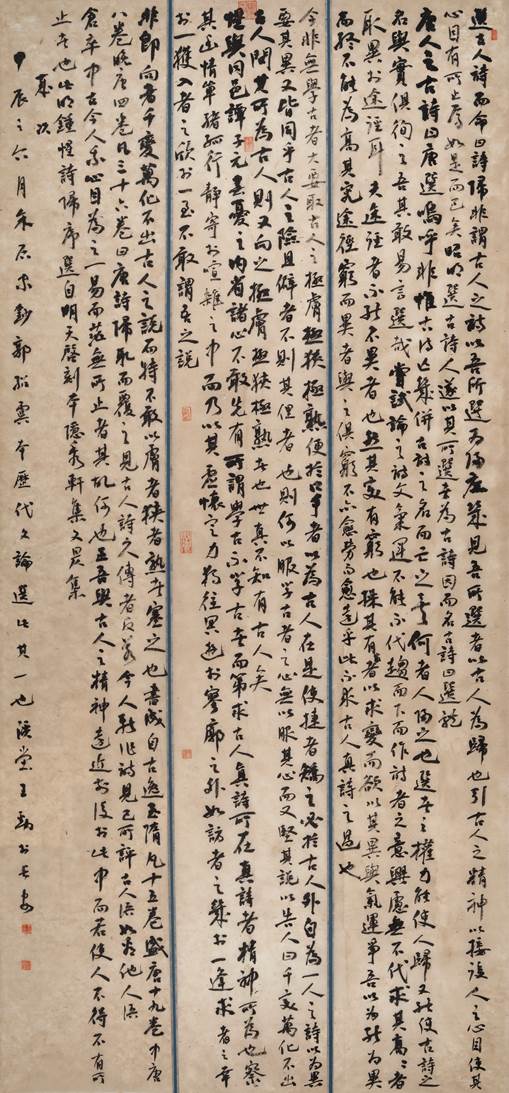 選古人詩而命曰詩歸非謂古人之詩以吾所選為歸庶幾見吾所選者以古人為歸也引古人之精神以接後人之心目使其
心目有所止焉如是而已矣昭明選古詩人遂以其所選者為古詩因而名古詩曰選體
唐人之古詩曰唐選嗚呼非惟古詩亡幾併古詩之名而亡之矣何者人歸之也選者之權力能使人歸又能使古詩之
名與實俱徇之吾其敢易言選哉嘗試論之詩文氣運不能不代趨而下而作詩者之意興慮無不代求其高高者
取異於途徑耳夫途徑者不能不異者也然其變有窮也操其有窮者以求變而欲以其異與氣運爭吾以為能為異
而終不能為高其究途徑窮而異者與之俱窮不亦愈勞而愈遠乎此不求古人真詩之過也
今非無學古者大要取古人之極膚極狹極熟便於口手者以為古人在是使捷者矯之必於古人外自為一人之詩以為異
要其異又皆同乎古人之險且僻者不則其俚者也則何以服學古者之心無以服其心而又堅其說以告人曰千變萬化不出
古人問其所為古人則又向之極膚極狹極熟者也世真不知有古人矣
惺與同邑譚子元春憂之內省諸心不敢先有所謂學古不學古者而第求古人真詩所在真詩者精神所為也察
其幽情單緒孤行靜寄於喧雜之中而乃以其虛懷定力獨往冥遊於寥廓之外如訪者之幾於一逢求者之幸
於一獲入者之欣於一至不敢謂吾之說
非即向者千變萬化不出古人之說而特不敢以膚者狹者熟者塞之也書成自古逸至隋凡十五卷盛唐十九卷中唐
八卷晚唐四卷凡三十六卷曰唐詩歸取而覆之見古人詩久傳者反若今人新作詩見己所評古人語如看他人語
倉卒中古今人我心目為之一易而茫無所止者其故何也正吾與古人之精神遠近前後於此中而若使人不得不有所
止者也此明鍾惺詩歸序選自明天啓刻本隱秀軒集文昃集
歲次
甲辰之六月朱原宗鈔郭紹虞本歷代文論選此其一也